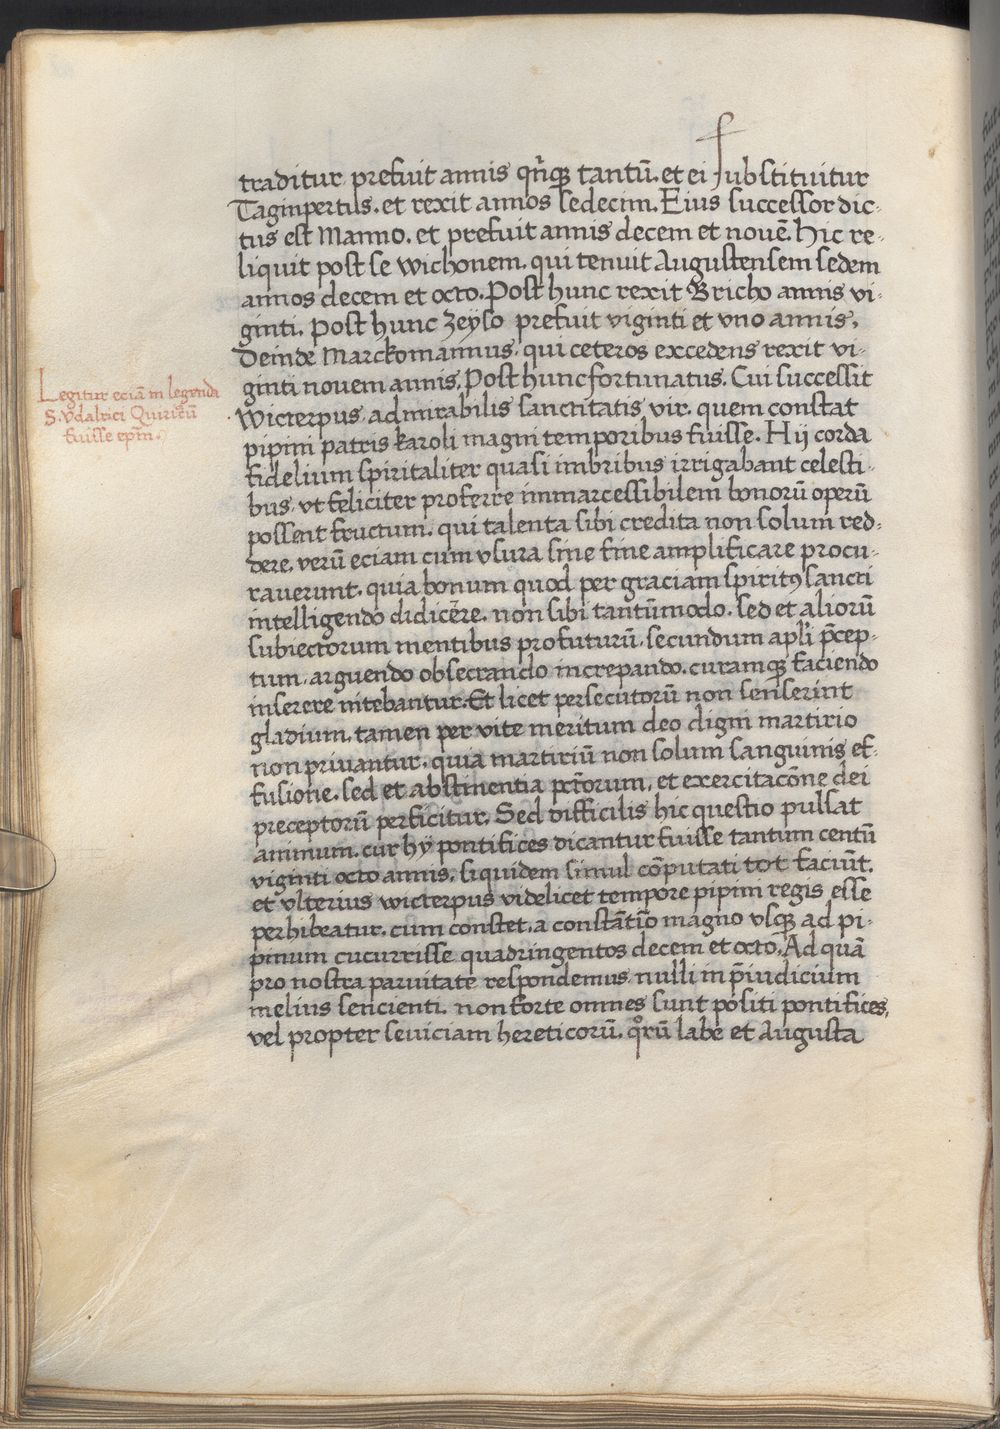 traditur prefuit annis qn̄qꝫ tantū. et ei substituitur
Taginpertus. et rexit annos sedecim. Eius successor dic-
tus est Manno. et prefuit annis decem et nouē. Hic re-
liquit post se wichonem. qui tenuit Augustensem sedem
annos decem et octo. Post hunc rexit Bricho annis vi-
ginti. Post hunc Zeyso prefuit viginti et vno annis.
Deinde Marckomannus. qui ceteros excedens rexit vi-
ginti novem annis. Post hunc fortunatus. Cui successit
Legitur eciā in legenda
S. vdalrici Quiriēū
fuisse ep̄m.
wicterpus admirabilis sanctitatis vir. quem constat
pipini patris karoli magni temporibus fuisse. Hij corda
fidelium spiritaliter quasi imbribus irrigabant celesti-
bus. vt feliciter proferre immarcessibilem bonorū operū
possent fructum. qui talenta sibi credita non solum red-
dere, verū eciam cum vsura sine fine amplificare procu-
rauerunt. quia bonum quod per graciam spiritꝰ sancti
intelligendo didicēre. non sibi tantūmodo. sed et aliorū
subiectorum mentibus profuturū. secundum apl̄i p̄cep-
tum. arguendo obsecrando increpando. curamqꝫ faciendo
inserere nitebantur. Et licet persecutorū non senserint
gladium. tamen per vite meritum deo digni martirio
non priuantur. quia martiriū non solum sanguinis ef-
fusione. sed et abstinentia pc̄torum. et exercitacōne dei
preceptorū perficitur. Sed difficilis hic questio pulsat
animum. cur hÿ pontifices dicantur fuisse tantum centū
viginti octo annis. siquidem simul cōputati tot faciūt.
et vlterius wicterpus videlicet tempore pipini regis esse
perhibeatur. cum constet. a constātīo magno vsqꝫ ad pi-
pinum cucurrisse quadringentos decem et octo. Ad quā
pro nostra paruitate respondemus nulli in p̄iudicium
melius sencienti. non forte omnes sunt positi pontifices,
vel propter seuiciam hereticorū. qͦrū labe et Augusta